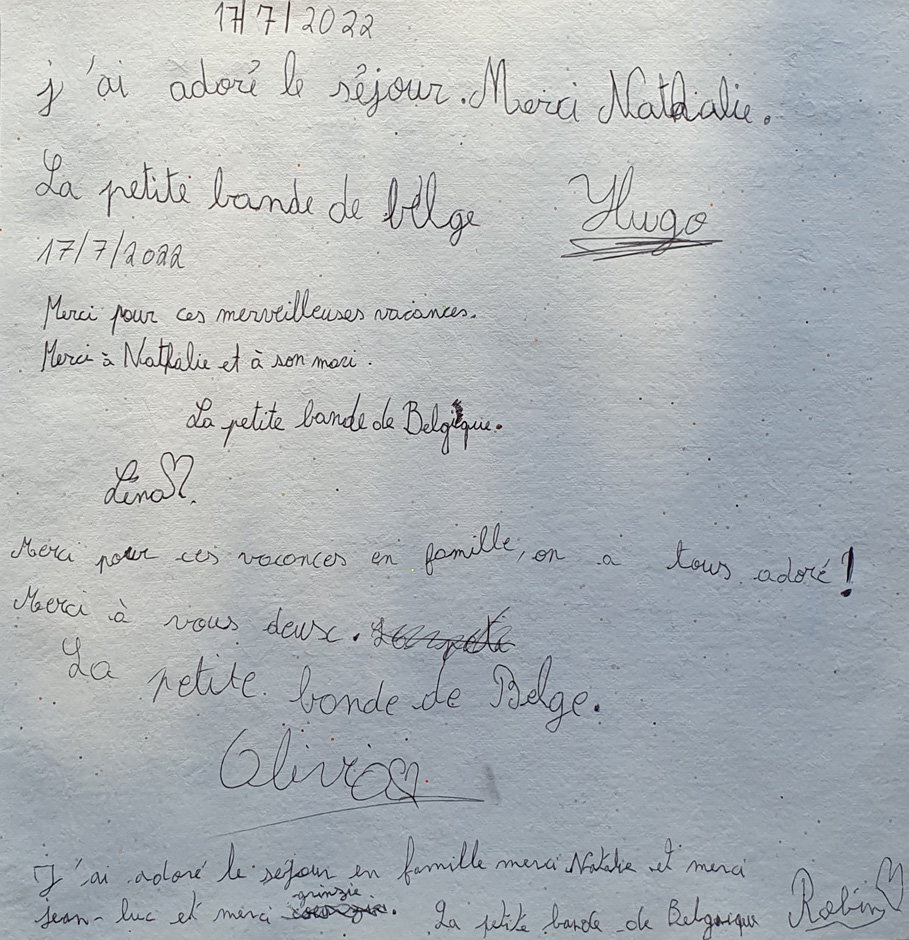 17/7/2022
j'ai adoré le séjour. Merci Nathalie.
La petite bande de bélge Hugo
17/7/2022
Merci pour ces merveilleuses vacances.
Merci à Nathalie et à son mari.
La petite bande de Belgique.
Léna♡.
Merci pour ces vacances en famille, on a tous adoré!
Merci à vous deux.
La petite bande de Belge.
Olivia♡
J'ai adoré le séjour en famille merci Natalie et merci
grinzie
jean-luc et merci . La petite bande de Belgique Robin♡